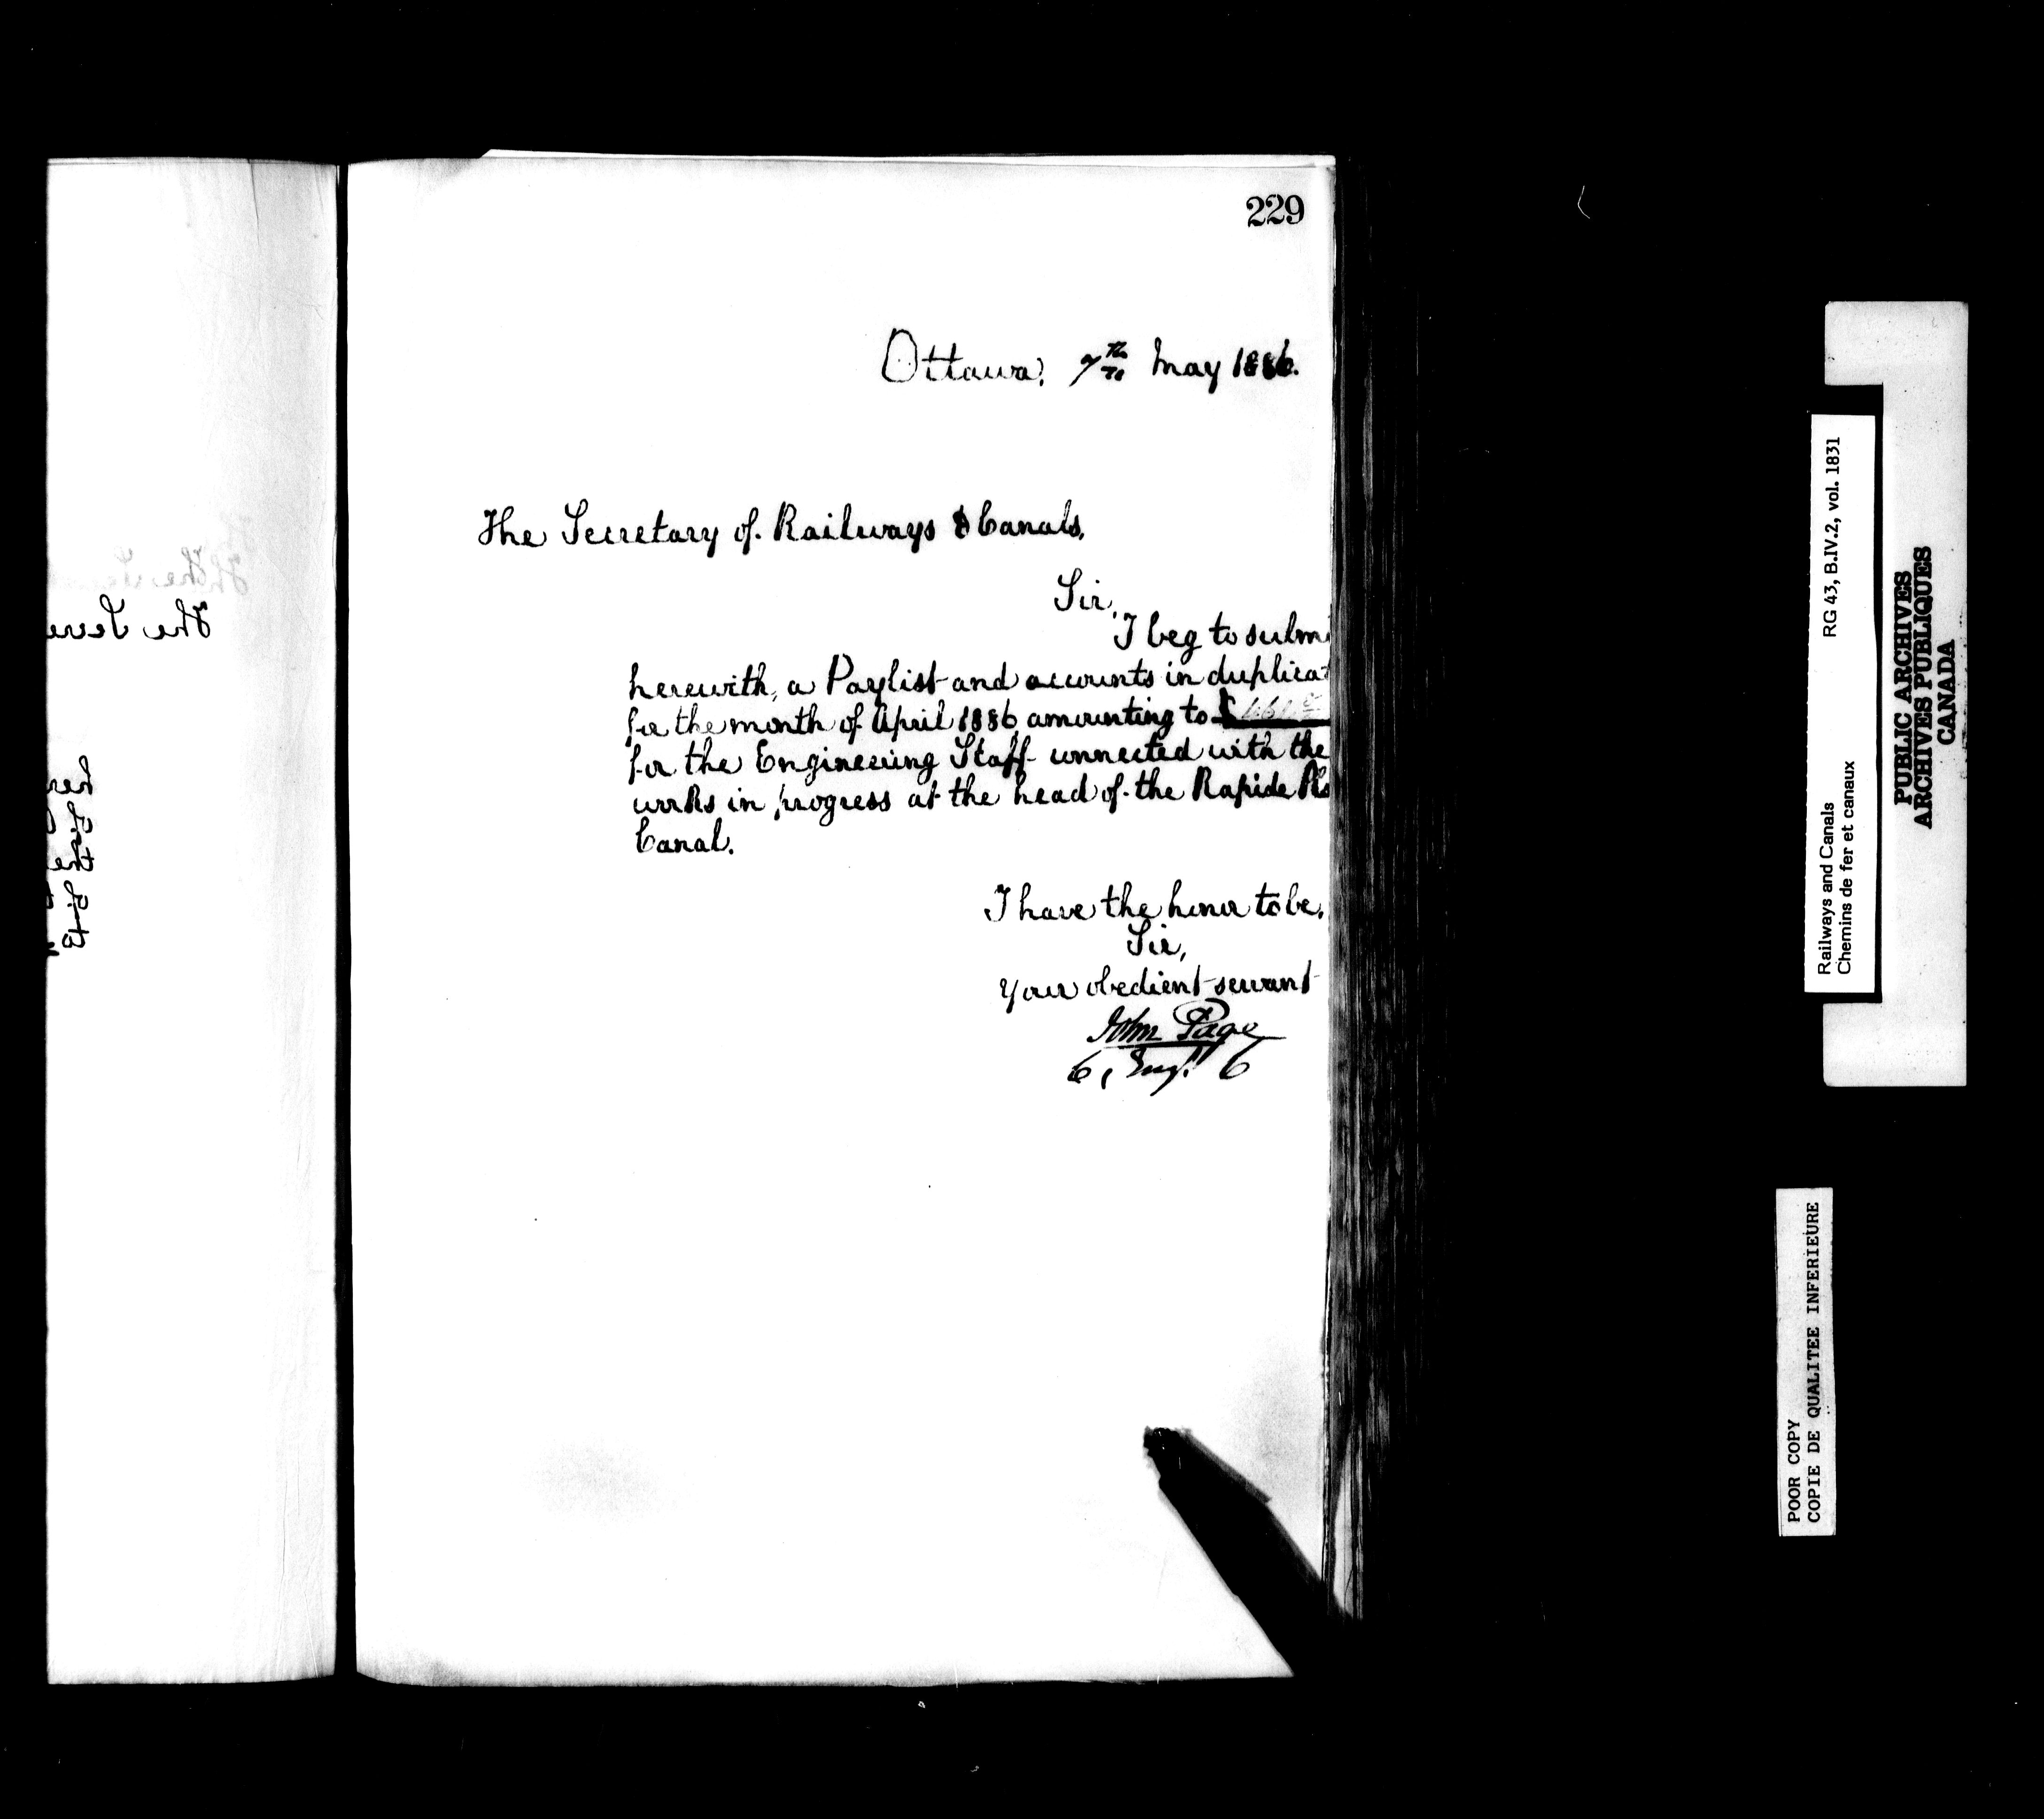 229
Ottawa, 7th May 1886.
The Secretary of Railways & Canals,
Sir,
I beg to submi
herewith, a Paylist and accounts in duplicat
for the month of April 1886 amounting to
for the Engineering Staff connected with the
works in progress at the head of the Rapide Pla
Canal.
I have the honor to be,
Sir,
Your obedient servant
John Page
C, Engr C
Railways and Canals RG 43, B.IV.2, vol. 1831
Chemins de fer et canaux
PUBLIC ARCHIVES
ARCHIVES PUBLIQUES
CANADA
POOR COPY
COPIE DE QUALITEE INFERIEURE